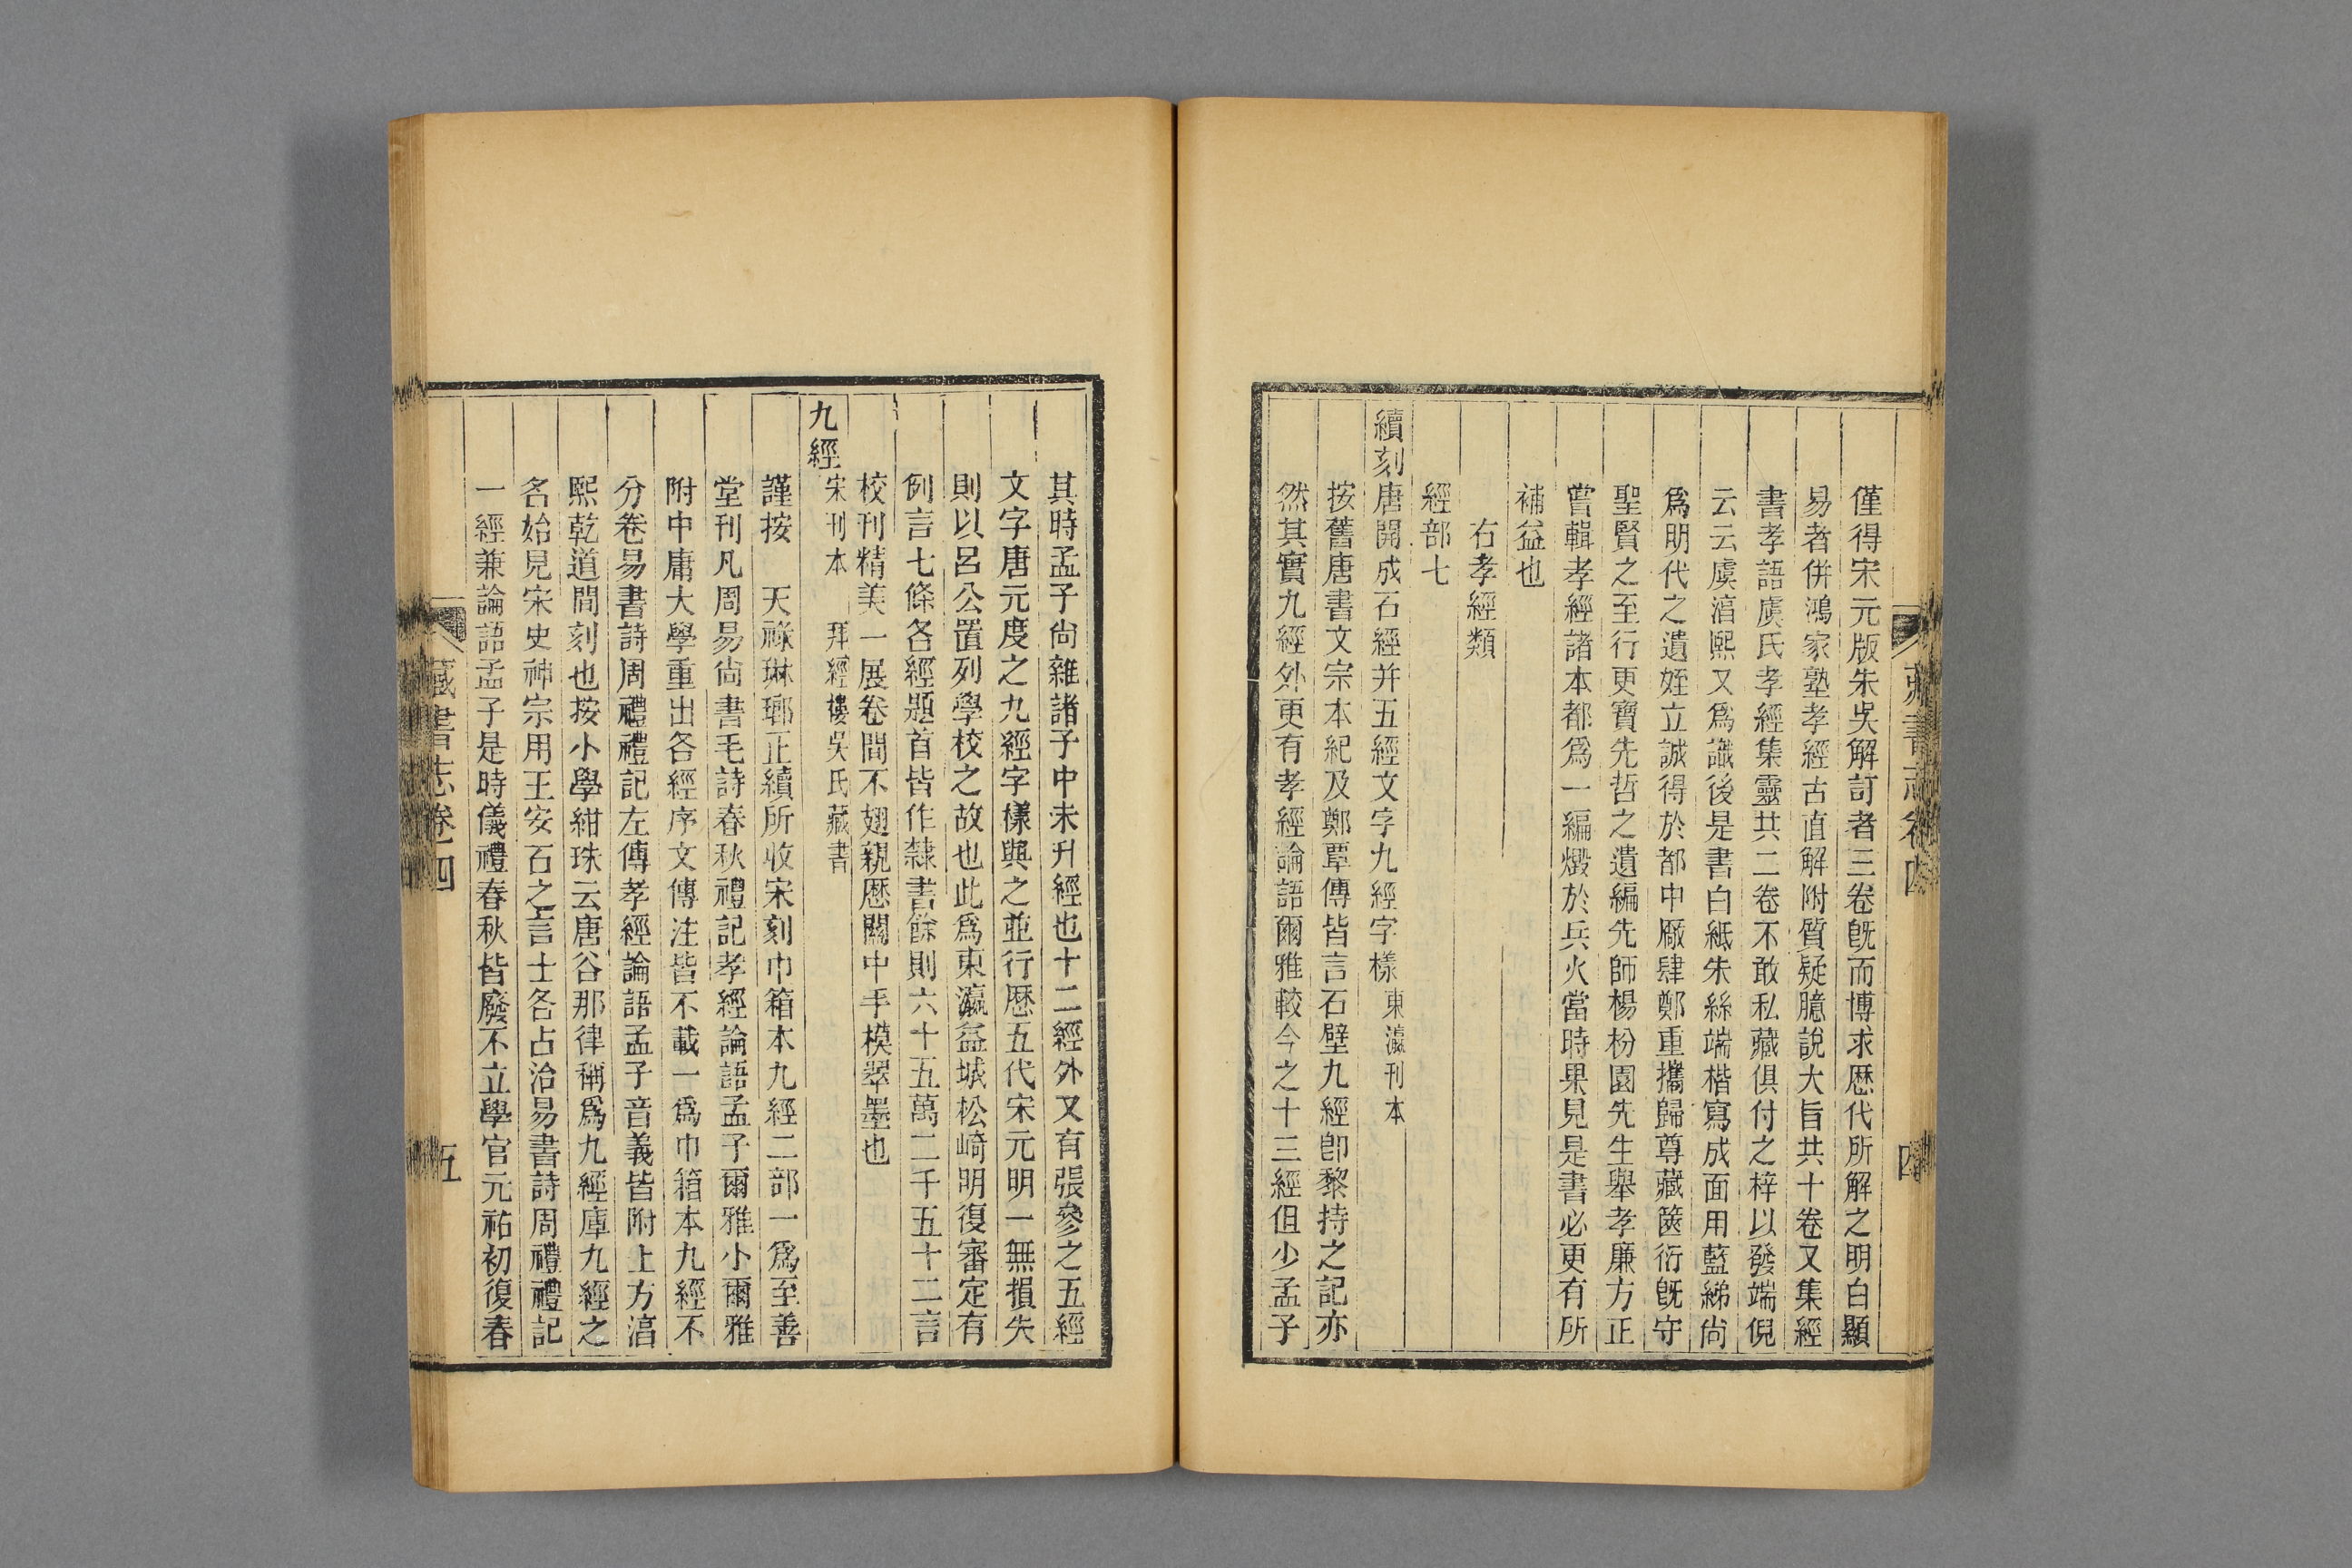 藏書志卷四
四
僅得宋元版朱吳解訂者三卷既而博求歷代所解之明白顯
易者併鴻家塾孝經古直解附質疑臆說大旨共十卷又集經
書孝語虞氏孝經集靈共二卷不敢私藏俱付之梓以發端倪
云云虞湻熙又爲識後是書白紙朱絲端楷寫成面用藍綈尙
爲明代之遺姪立誠得於都中厰肆鄭重攜歸尊藏篋衍既守
聖賢之至行更寶先哲之遺編先師楊枌園先生舉孝廉方正
嘗輯孝經諸本都爲一編燬於兵火當時果見是書必更有所
補益也
右孝經類
經部七
續刻唐開成石經并五經文字九經字樣 東瀛刊本
按舊唐書文宗本紀及鄭覃傳皆言石壁九經卽黎持之記亦
然其實九經外更有孝經論語爾雅較今之十三經但少孟子
其時孟子尙雜諸子中未升經也十二經外又有張參之五經
文字唐元度之九經字樣與之並行歷五代宋元明一無損失
則以呂公置列學校之故也此爲東瀛益城松崎明復審定有
例言七條各經題首皆作隸書餘則六十五萬二千五十二言
校刊精美一展卷間不翅親歷關中手模翠墨也
九經 宋刊本 拜經樓吳氏藏書
謹按 天祿琳瑯正續所收宋刻巾箱本九經二部一爲至善
堂刊凡周易尙書毛詩春秋禮記孝經論語孟子爾雅小爾雅
附中庸大學重出各經序文傳注皆不載一爲巾箱本九經不
分卷易書詩周禮禮記左傳孝經論語孟子音義皆附上方湻
熙乾道間刻也按小學紺珠云唐谷那律稱爲九經庫九經之
名始見宋史神宗用王安石之言士各占治易書詩周禮禮記
一經兼論語孟子是時儀禮春秋皆廢不立學官元祐初復春
藏書志卷四
五